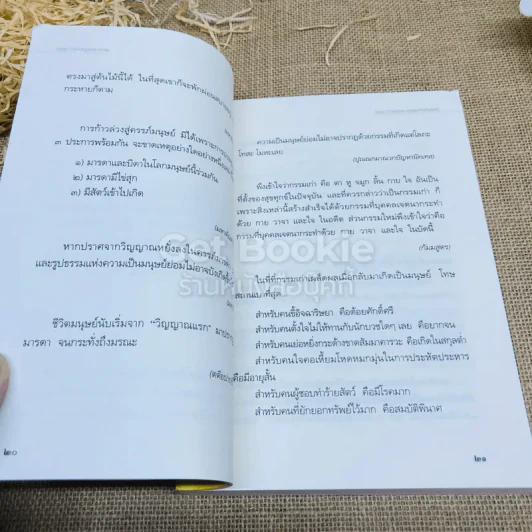 ตรงมาสู่ต้นไม้นี้ได้ ในที่สุดเขาก็จะพักผ่อนนอน
กระหายก็ตาม
การก้าวล่วงสู่ครรภ์มนุษย์ มีได้เพราะการ
๓ ประการพร้อมกัน จะขาดเหตุอย่างใดอย่างหนึ่ง
๑) มารดาและบิดาในโลกมนุษย์นี้ร่วมกัน
๒) มารดามีไข่สุก
๓) มีสัตว์เข้าไปเกิด
หากปราศจากวิญญาณหยั่งลงในครรภ์มารดา
และรูปธรรมแห่งความเป็นมนุษย์ย่อมไม่อาจบังเกิดขึ้น
ชีวิตมนุษย์นับเริ่มจาก “วิญญาณแรก” มา
มารดา จนกระทั่งถึงมรณะ
๒๐
ความเป็นมนุษย์ย่อมไม่อาจปรากฏด้วยกรรมที่เกิดแต่โลภะ
โทสะ โมหะเลย
พึงเข้าใจว่ากรรมเก่า คือ ตา หู จมูก ลิ้น กาย ใจ อันเป็น
ที่ตั้งของสุขทุกข์ในปัจจุบัน และที่ควรกล่าวว่าเป็นกรรมเก่า ก็
เพราะสิ่งเหล่านี้สร้างสำเร็จได้ด้วยกรรมที่บุคคลเจตนากระทำ
ด้วย กาย วาจา และใจ ในอดีต ส่วนกรรมใหม่พึงเข้าใจว่าคือ
กรรมที่บุคคลเจตนากระทำด้วย กาย วาจา และใจ ในบัดนี้
(กัมมสูตร)
ในที่ที่กรรมเก่าเผล็ดผลเมื่อกลับมาเกิดเป็นมนุษย์ โทษ
สถานเบาที่สุด
สำหรับคนขี้อิจฉาริษยา คือต้อยศักดิ์ศรี
สำหรับคนตั้งใจไม่ให้ทานกับนักบวชใดๆ เลย คือยากจน
สำหรับคนเย่อหยิ่งกระด้างขาดสัมมาคารวะ คือเกิดในสกุลต่ำ
สำหรับคนใจคอเหี้ยมโหดหมกมุ่นในการประหัตประหาร
คือมีอายุสั้น
สำหรับคนผู้ชอบทำร้ายสัตว์ คือมีโรคมาก
สำหรับคนที่ยักยอกทรัพย์ไว้มาก คือสมบัติพินาศ
๒๑
Get Bookie
ร้านหนังสือบุคกี้